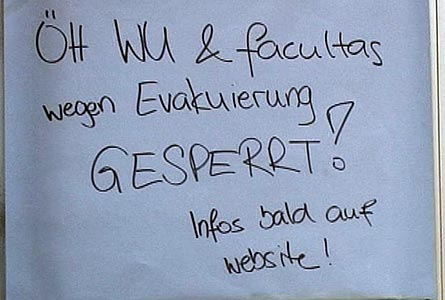 ÖH WU & facultas
wegen Evakuierung
GESPERRT!
Infos bald auf
website!